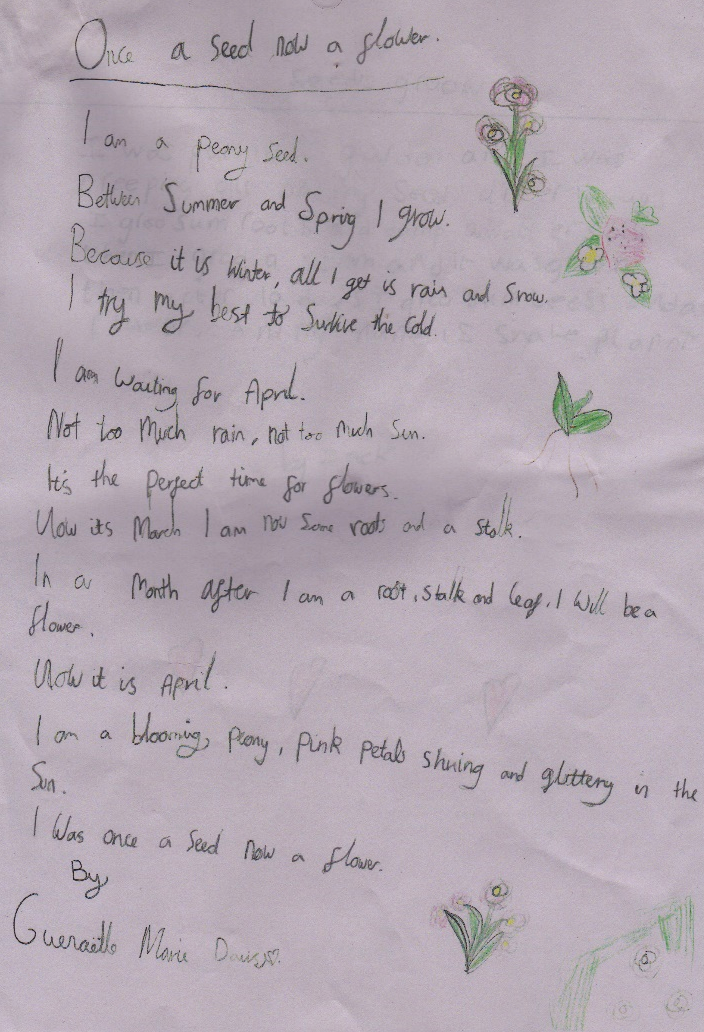 Once a seed now a flower.
I am a peony seed.
Between Summer and Spring I grow.
Because it is Winter, all I get is rain and snow.
I try my best to Survive the cold.
I am waiting for April.
Not too much rain, not too much Sun.
It's the perfect time for flowers.
Now its March I am now some roots and a stalk.
In a month after I am a root, stalk and leaf, I will be a
flower.
Now it is April.
I am a blooming, peony, pink petals shining and glittery in the
Sun.
I was once a seed now a flower.
By
Marie